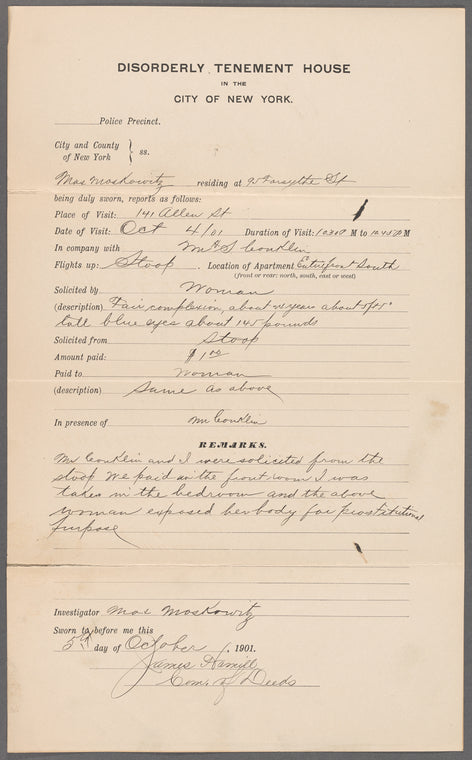 DISORDERLY TENEMENT HOUSE
IN THE
CITY OF NEW YORK.
Police Precinct.
City and County
of New York } ss.
Max Moskowitz residing at 95 Forsythe St
being duly sworn, reports as follows:
Place of Visit: 141 Allen St
Date of Visit: Oct 4/01 Duration of Visit: PM to 10.45 PM
In company with Mr S Conklin
Flights up: Stoop. Location of Apartment Entire front South
(front or rear: north, south, east or west)
Solicited by Woman
(description) Fair complexion, about years about 5ft
tall blue eyes about 145 pounds
Solicited from Stoop
Amount paid: $1.00
Paid to Woman
(description) Same as above
In presence of Mr Conklin
REMARKS.
Mr Conklin and I were solicited from the
stoop We paid in the front room I was
taken in the bedroom and the above
woman exposed her body for prostitutional
purpose
Investigator Max Moskowitz
Sworn to before me this
5th day of October, 1901.
James Hamill
Com. of Deeds